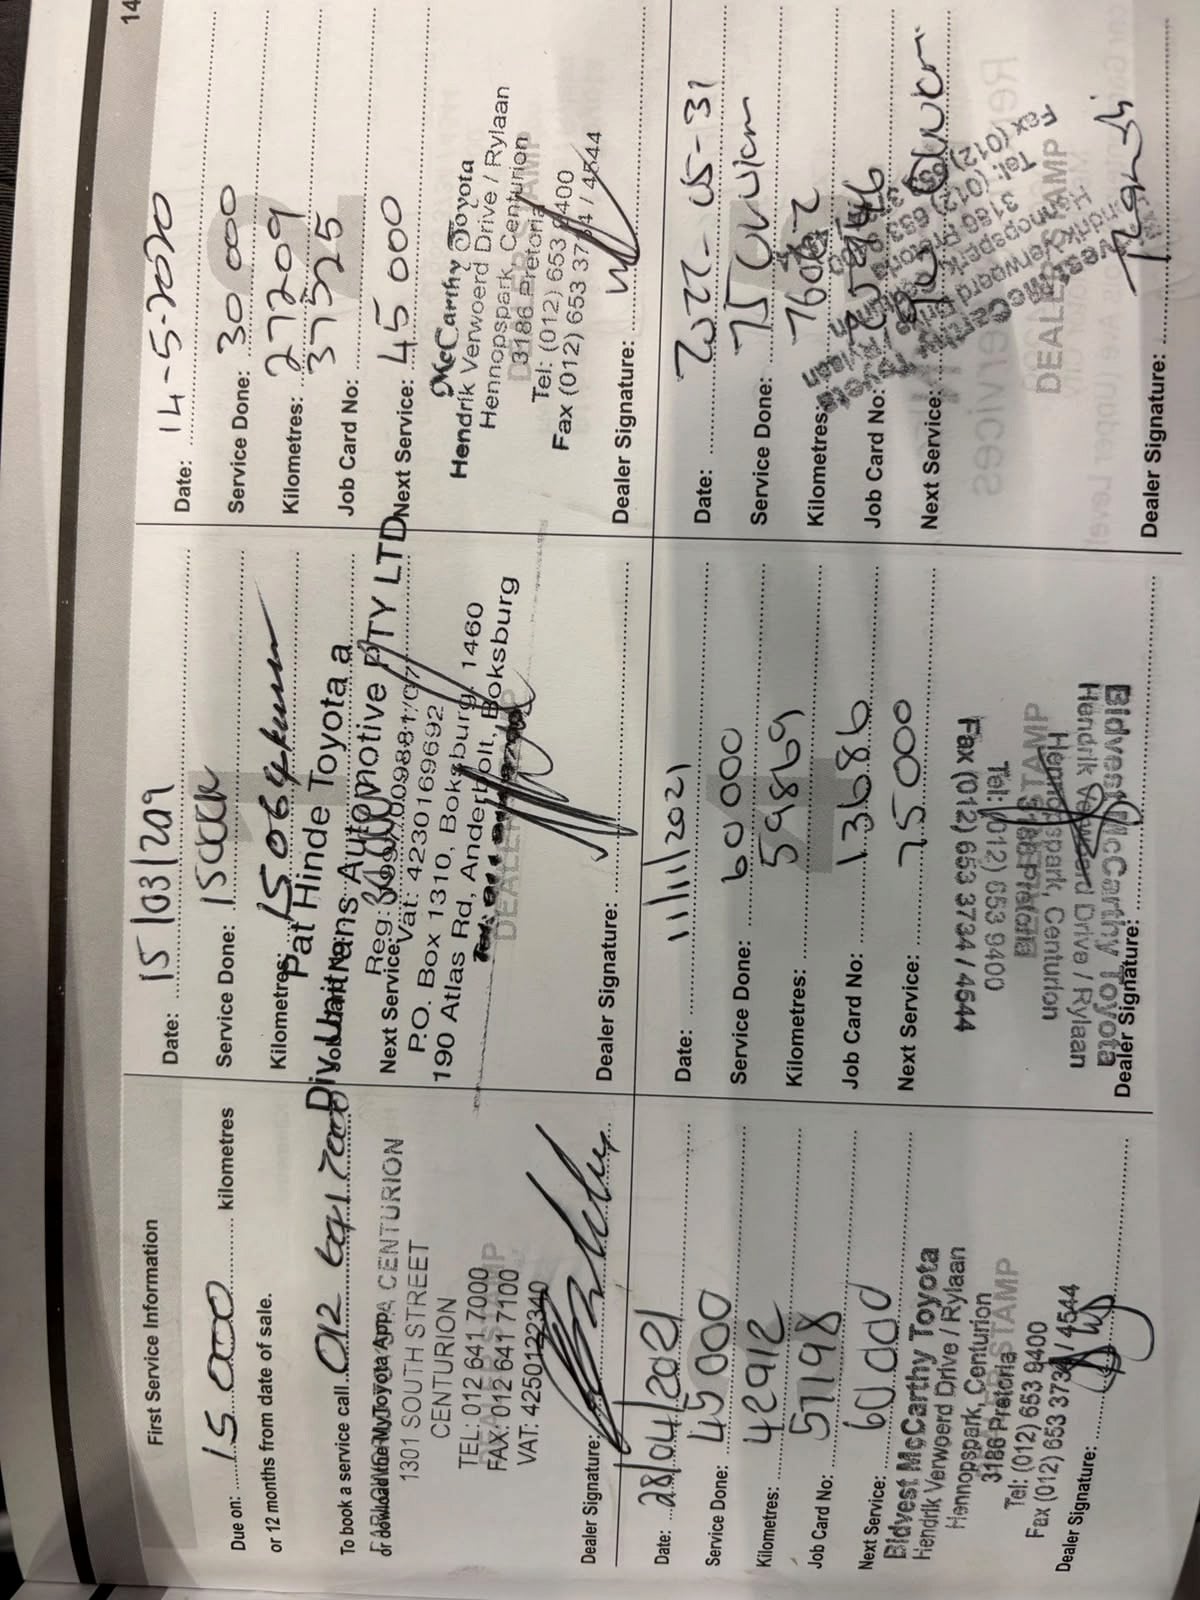 14
First Service Information
Due on: 15 000 kilometres
or 12 months from date of sale.
To book a service call 012 641 7000
or download the MyToyota App.
CENTURION
1301 SOUTH STREET
CENTURION
TEL: 012 641 7000
FAX: 012 641 7100
VAT: 4250122340
DEALER STAMP
Dealer Signature:
Date: 15/03/2019
Service Done: 15000
Kilometres: 15064km
Pat Hinde Toyota a
Div. Unitrans Automotive PTY LTD
Job Card No:
Reg:
Next Service: 30 000
Vat: 4230169692
P.O. Box 1310, Boksburg, 1460
190 Atlas Rd, Anderbolt, Boksburg
DEALER
Dealer Signature:
Date: 14-5-2020
Service Done: 30 000
Kilometres: 27209
37525
Job Card No:
Next Service: 45 000
McCarthy Toyota
Hendrik Verwoerd Drive / Rylaan
Hennopspark, Centurion
3186 Pretoria
DEALER STAMP
Tel: (012) 653 9400
Fax (012) 653 3734 / 4544
Dealer Signature:
Date: 28/04/2021
Service Done: 45 000
Kilometres: 42912
Job Card No: 57198
Next Service: 60 000
Bidvest McCarthy Toyota
Hendrik Verwoerd Drive / Rylaan
Hennopspark, Centurion
3186 Pretoria
DEALER STAMP
Tel: (012) 653 9400
Fax (012) 653 3734 / 4544
Dealer Signature:
Date: 11/11/2021
Service Done: 60 000
Kilometres: 59869
Job Card No: 13686
Next Service: 75000
Fax (012) 653 3734 / 4544
Tel: (012) 653 9400
3186 Pretoria
DEALER STAMP
Hennopspark, Centurion
Hendrik Verwoerd Drive / Rylaan
Bidvest McCarthy Toyota
Dealer Signature:
Date: 2022-05-31
Service Done: 75 000 km
Kilometres:
Job Card No:
Next Service: 90 000 km
McCarthy Toyota
3186
Tel: (012)
Fax (012)
DEALER STAMP
Dealer Signature: